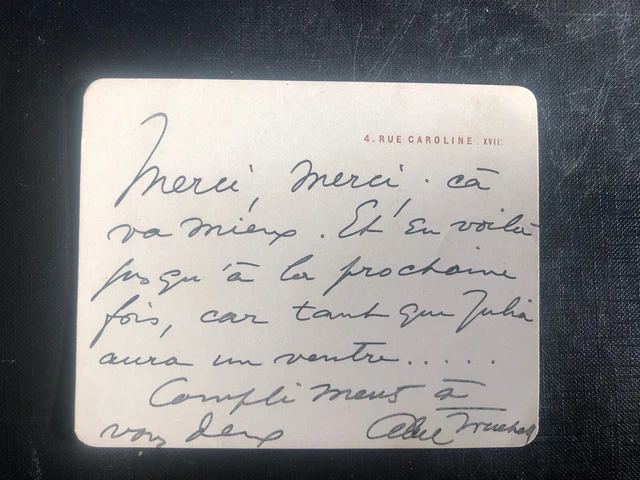 4. RUE CAROLINE . XVIIᵉ
Merci, merci. cā
va mieux. Et en voilà
jusqu'à la prochaine
fois, car tant que Julia
aura un ventre.....
Compliments à
vous deux